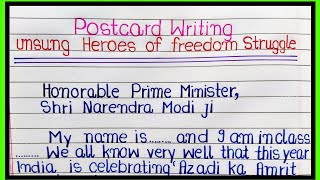 Postcard Writing
unsung Heroes of freedom Struggle
Honorable Prime Minister,
Shri Narendra Modi ji
My name is....... and I am in class
.... We all know very well that this year
India is celebrating 'Azadi ka Amrit